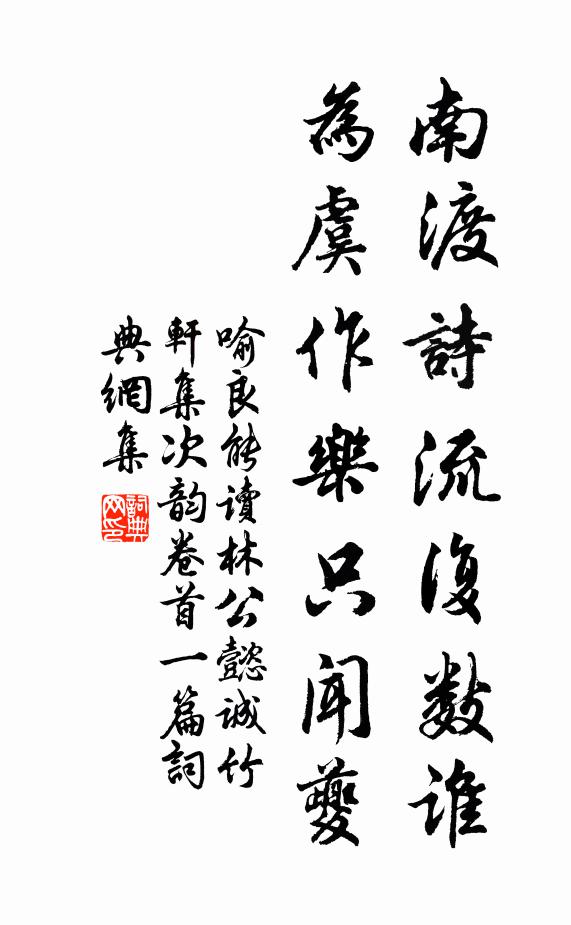 南渡詩流復數誰
為虞作樂只聞夔
喻良能讀林公懿誠竹
軒集次韵卷首一篇詞
典網集
詞典網印